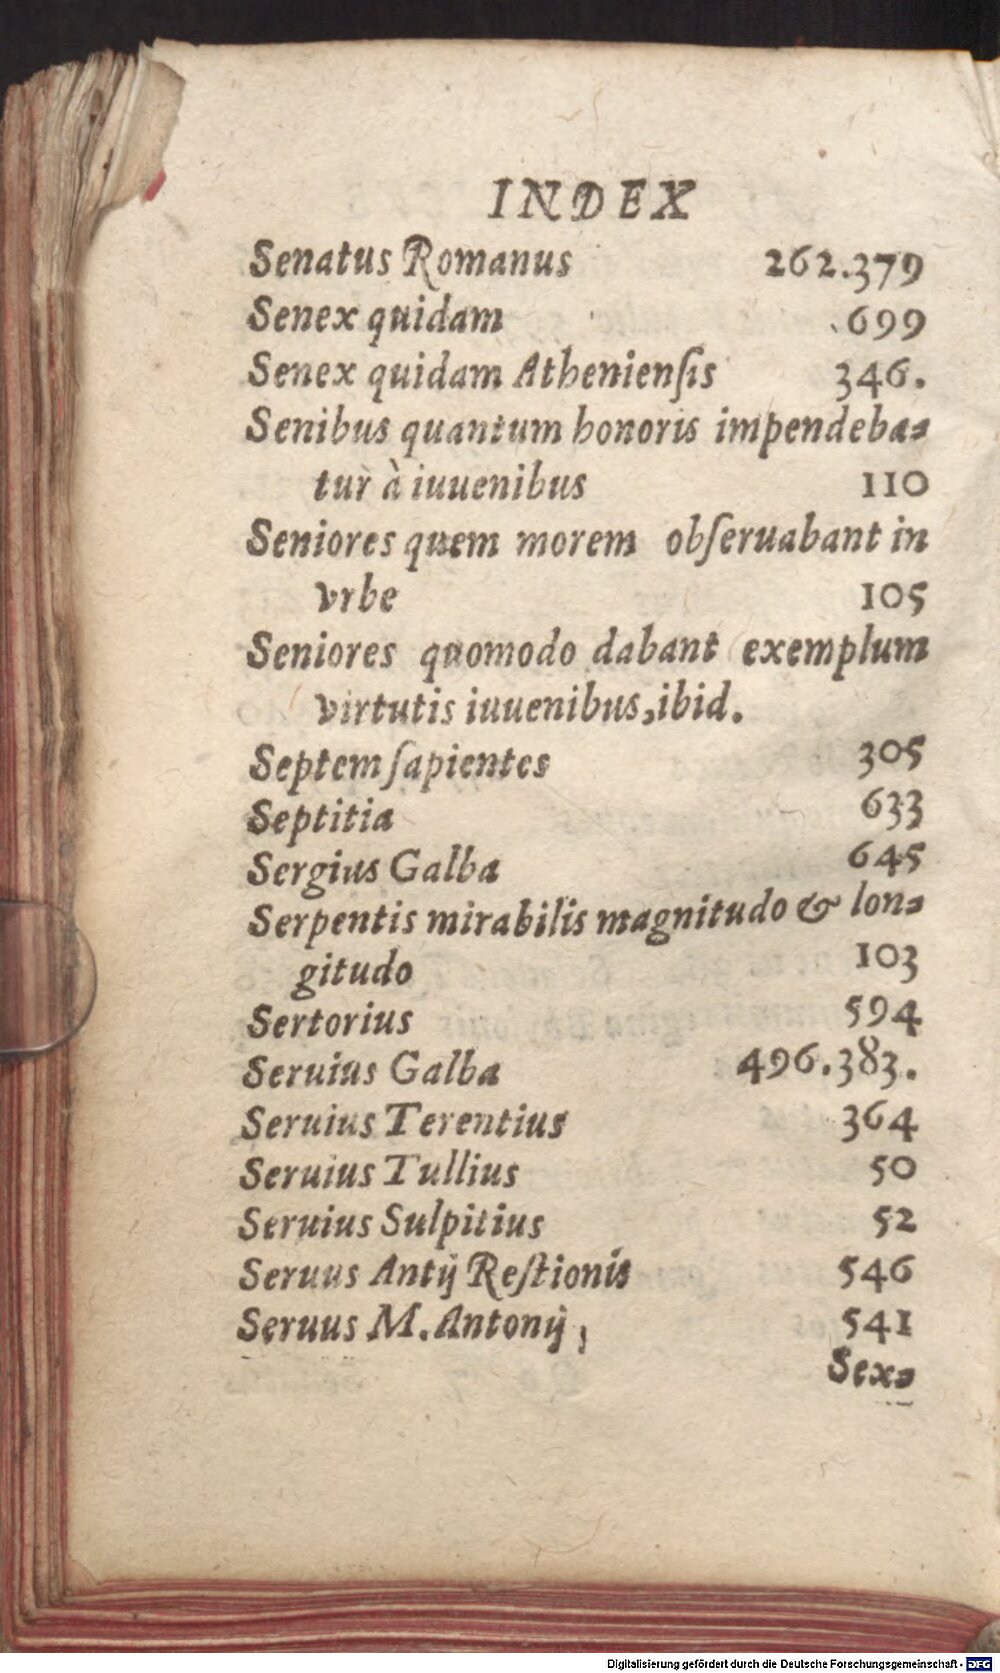 INDEX
Senatus Romanus 262.379
Senex quidam 699
Senex quidam Athenienſis 346.
Senibus quantum honoris impendeba-
tur à iuuenibus 110
Seniores quem morem obſeruabant in
vrbe 105
Seniores quomodo dabant exemplum
virtutis iuuenibus, ibid.
Septem ſapientes 305
Septitia 633
Sergius Galba 645
Serpentis mirabilis magnitudo & lon-
gitudo 103
Sertorius 594
Seruius Galba 496.383.
Seruius Terentius 364
Seruius Tullius 50
Seruius Sulpitius 52
Seruus Antij Reſtionis 546
Seruus M. Antonij, 541
Sex-
Digitalisierung gefördert durch die Deutsche Forschungsgemeinschaft - DFG